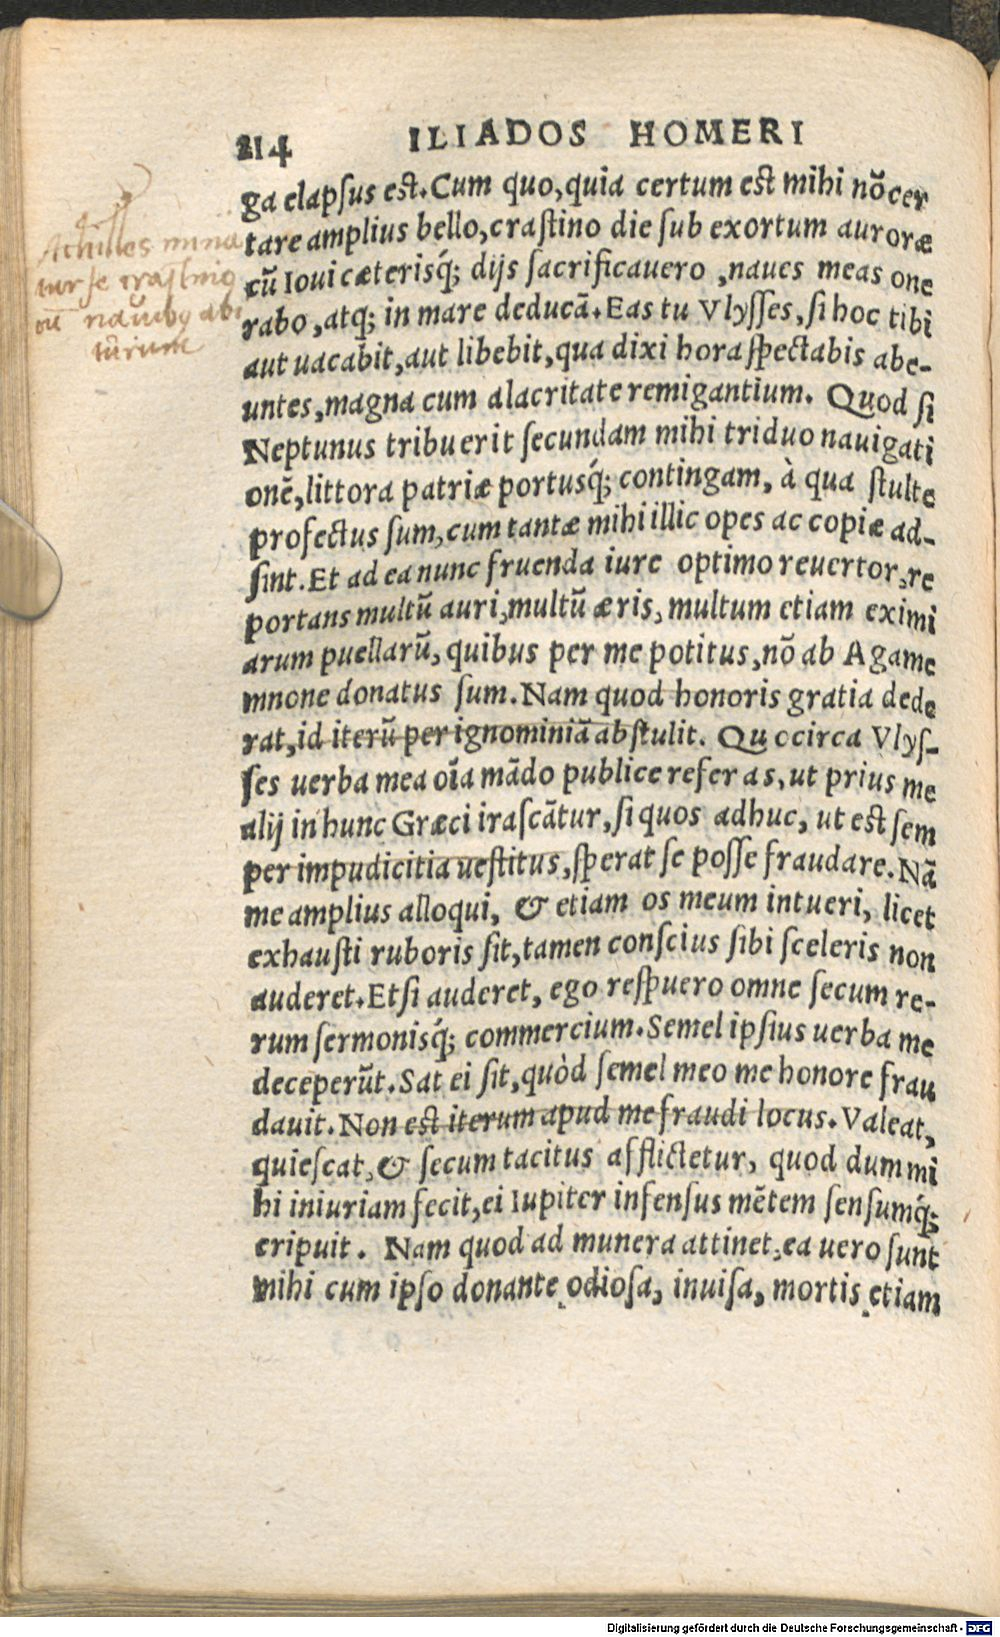 214 ILIADOS HOMERI
ga elapſus est. Cum quo, quia certum est mihi nō cer
tare amplius bello, craſtino die ſub exortum auroræ
cū Ioui cæterisq́; dijs ſacrificauero, naues meas one
rabo, atq; in mare deducā. Eas tu Vlyſſes, ſi hoc tibi
aut uacabit, aut libebit, qua dixi hora ſpectabis abe-
untes, magna cum alacritate remigantium. Quod ſi
Neptunus tribuerit ſecundam mihi triduo nauigati
onē, littora patriæ portusq́; contingam, à qua ſtulte
profectus ſum, cum tantæ mihi illic opes ac copiæ ad-
ſint. Et ad ea nunc fruenda iure optimo reuertor, re
portans multū auri, multū æris, multum etiam eximi
arum puellarū, quibus per me potitus, nō ab Agame
mnone donatus ſum. Nam quod honoris gratia dede
rat, id iterū per ignominiā abſtulit. Quocirca Vlyſ-
ſes uerba mea oīa mādo publice referas, ut prius me
alij in hunc Græci iraſcātur, ſi quos adhuc, ut est ſem
per impudicitia ueſtitus, ſperat ſe poſſe fraudare. Nā
me amplius alloqui, & etiam os meum intueri, licet
exhauſti ruboris ſit, tamen conſcius ſibi ſceleris non
auderet. Etſi auderet, ego reſpuero omne ſecum re-
rum ſermonisq́; commercium. Semel ipſius uerba me
deceperūt. Sat ei ſit, quòd ſemel meo me honore frau
dauit. Non est iterum apud me fraudi locus. Valeat,
quieſcat, & ſecum tacitus afflictetur, quod dum mi
hi iniuriam fecit, ei Iupiter infenſus mētem ſenſumq́;
eripuit. Nam quod ad munera attinet, ea uero ſunt
mihi cum ipſo donante odioſa, inuiſa, mortis etiam
Achilles mina
tur ſe craſtino
cū nauibꝫ abi
turum
Digitalisierung gefördert durch die Deutsche Forschungsgemeinschaft - DFG